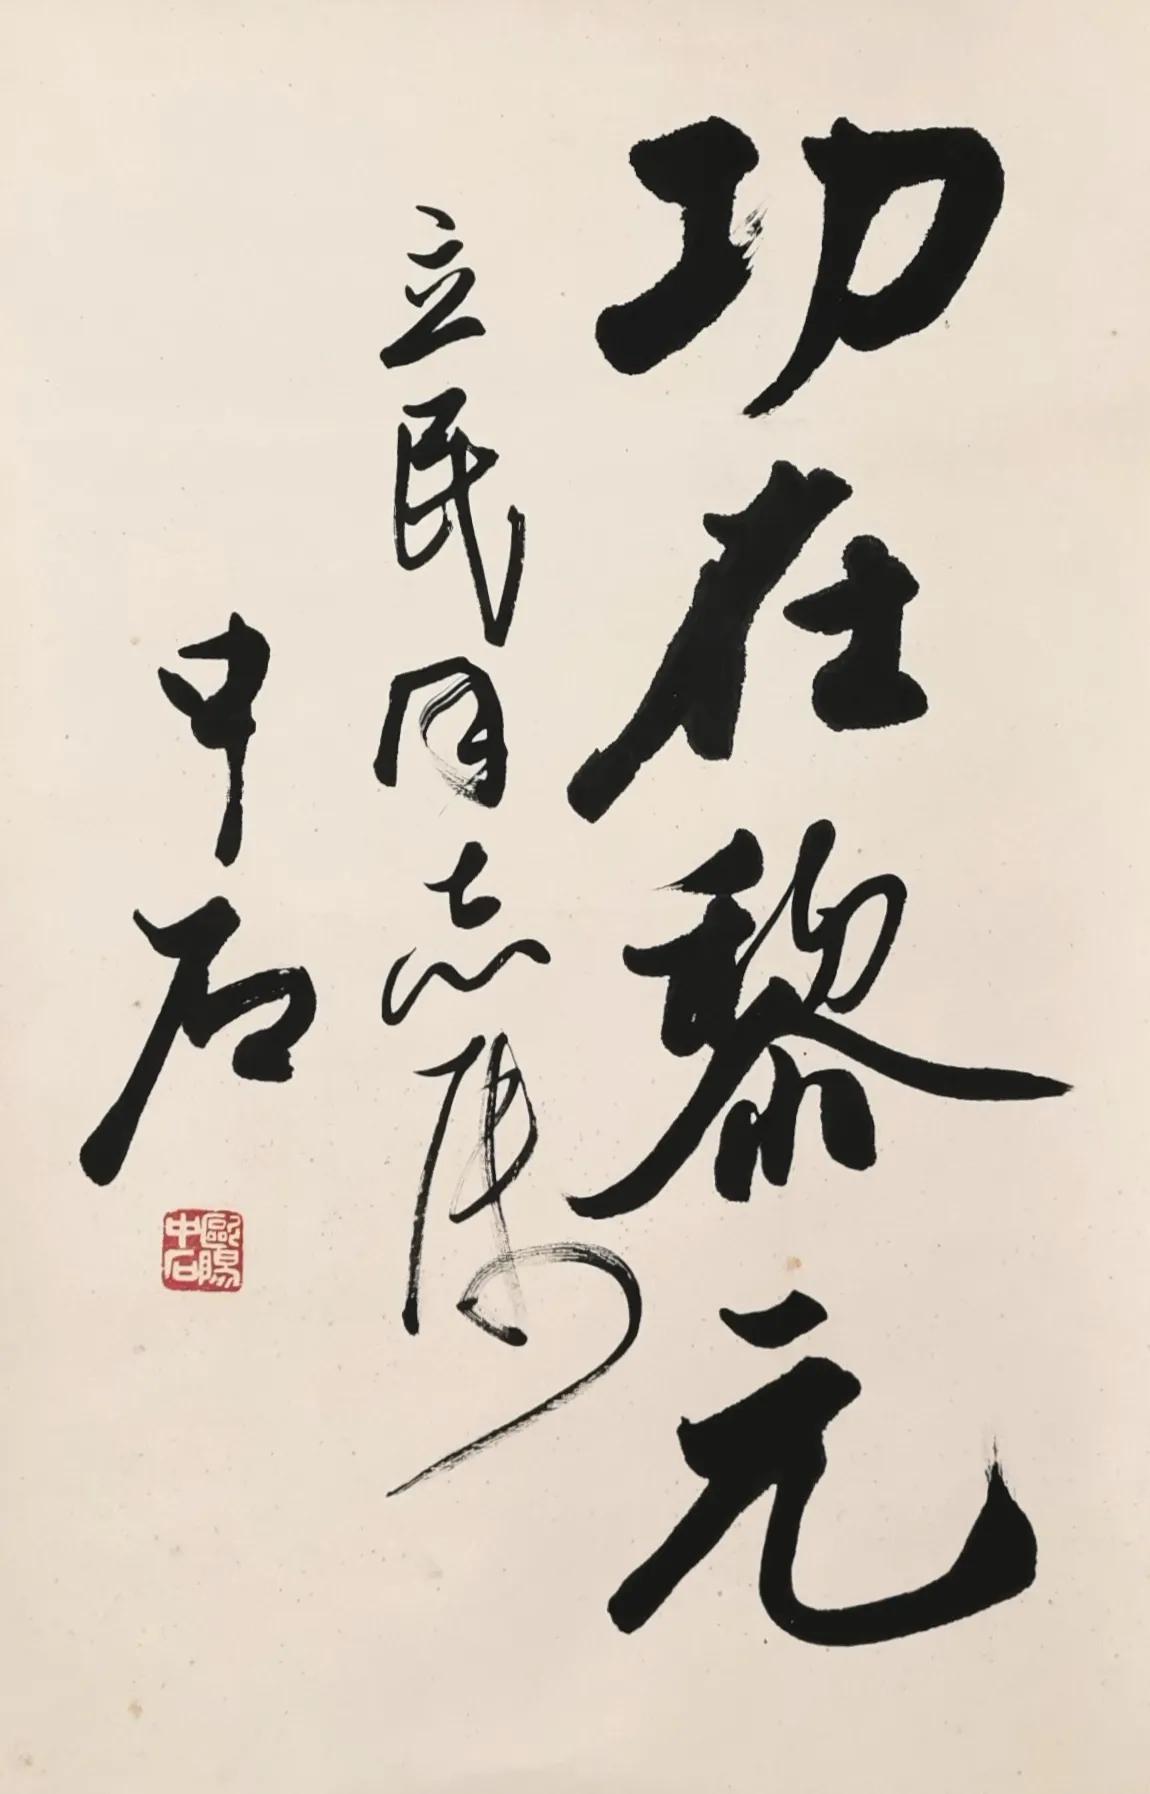 功在黎元
立民同志属
中石
歐陽中石